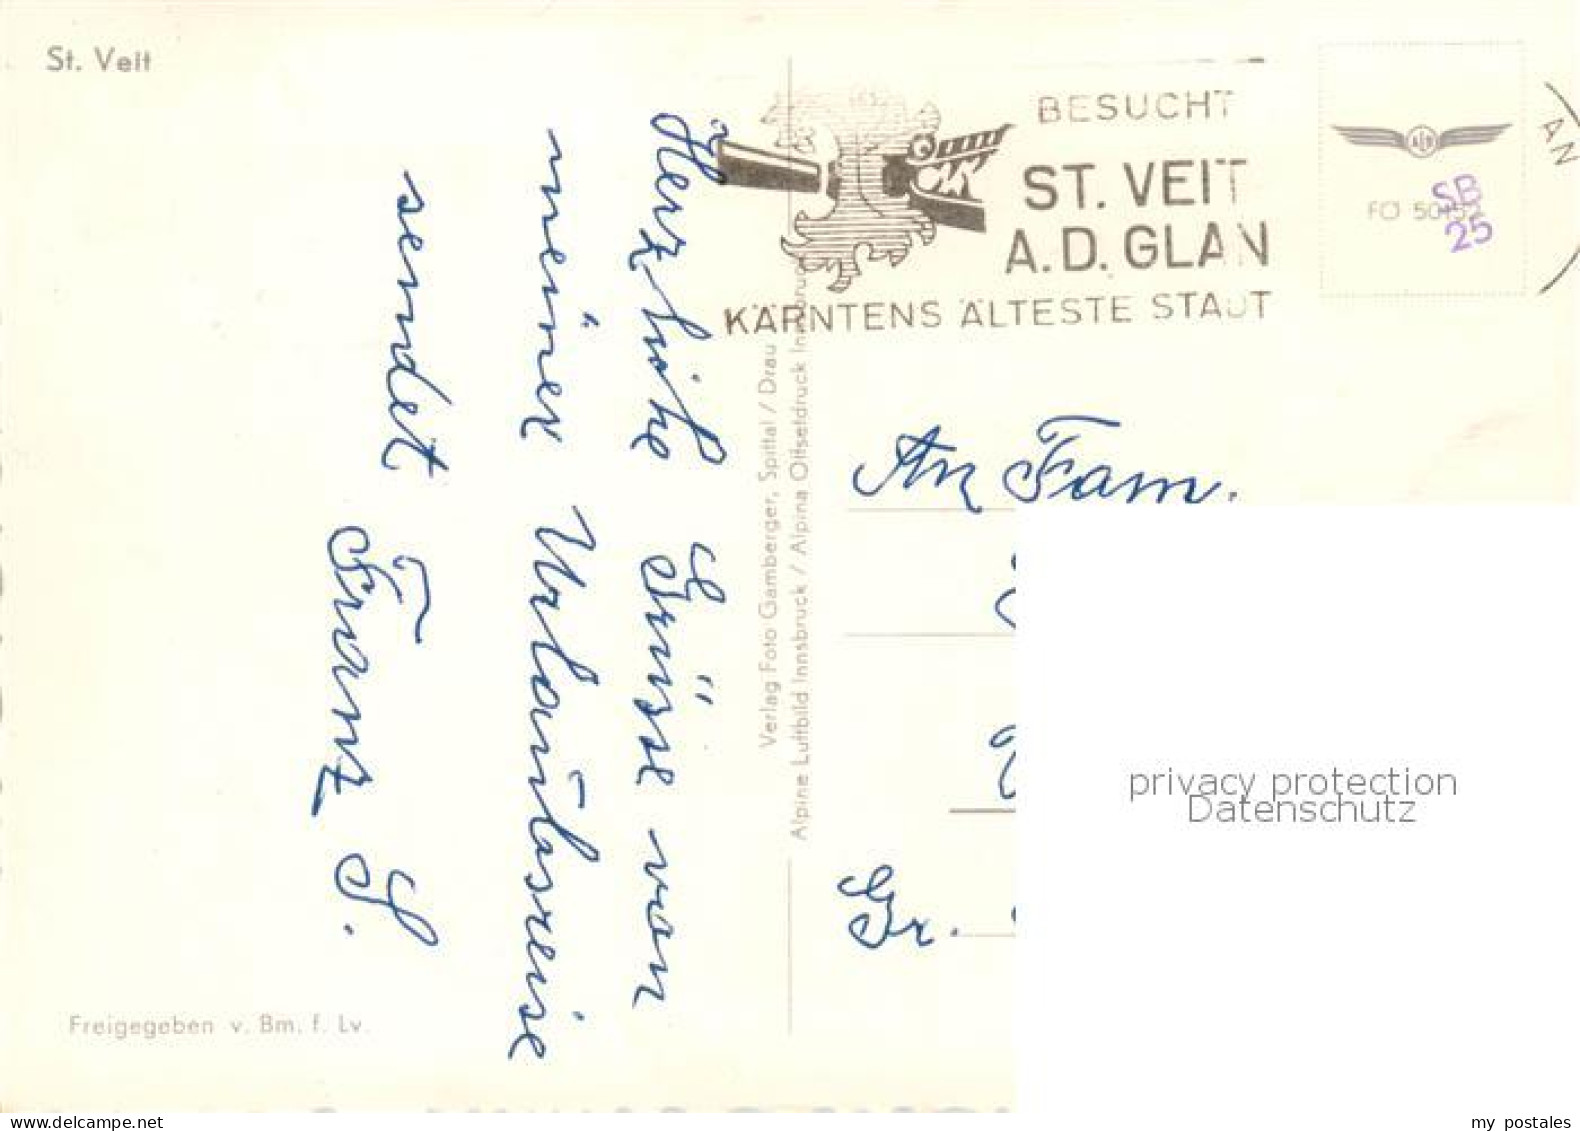 St. Veit
BESUCHT
ST. VEIT
A.D. GLAN
KÄRNTENS ÄLTESTE STADT
AN
SB
25
Herzliche Grüsse von
meiner Urlaubsreise
sendet Franz S.
Verlag Foto Gamberger, Spittal / Drau
Alpine Luftbild Innsbruck / Alpina Offsetdruck Innsbruck
An Fam.
Gr.
privacy protection
Datenschutz
Freigegeben v. Bm. f. Lv.
my postales